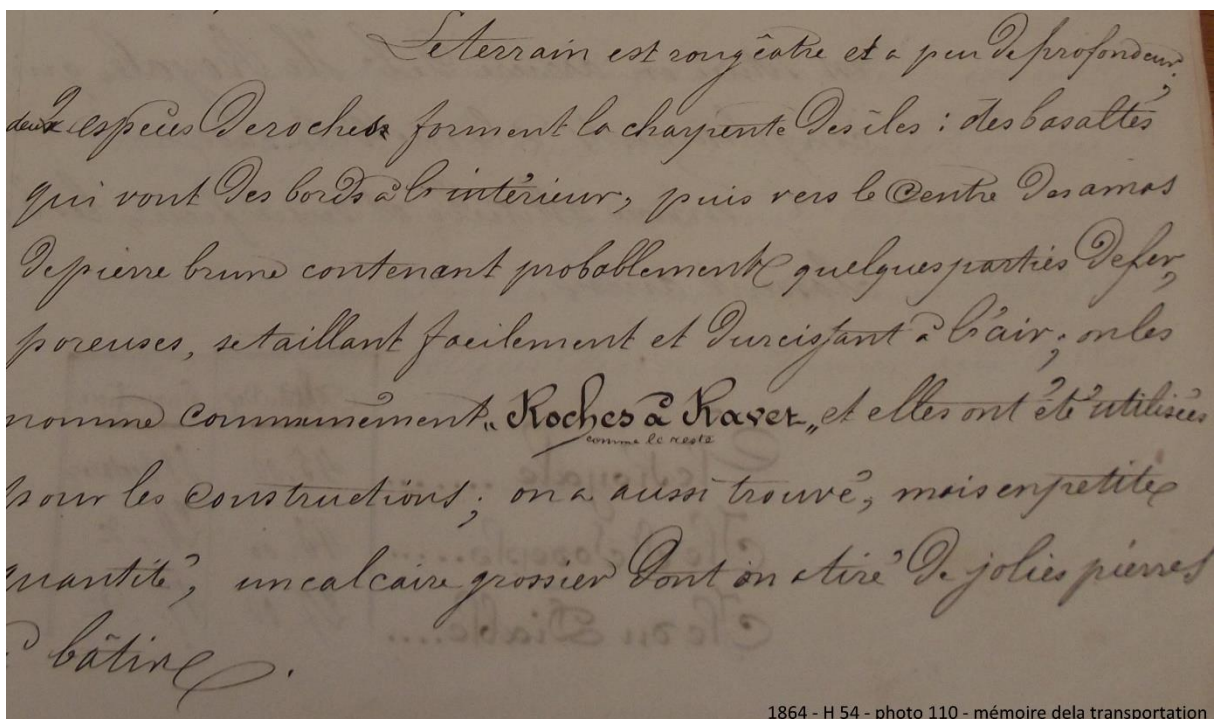 Le terrain est rougeâtre et a peu de profondeur;
deux espèces de roches forment la charpente des îles : des basaltes
qui vont des bords à l'intérieur, puis vers le Centre des amas
de pierre brune contenant probablement quelques parties de fer,
poreuses, se taillant facilement et durcissant à l'air ; on les
nomme communément „Roches à Ravet„ et elles ont été utilisées
comme le reste
pour les constructions ; on a aussi trouvé, mais en petite
quantité, un calcaire grossier dont on a tiré de jolies pierres
à bâtir.
1864 - H 54 - photo 110 - mémoire dela transportation